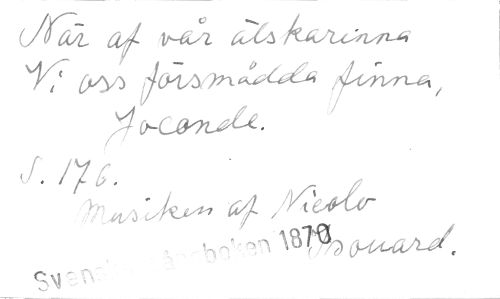 När af vår älskarinna
Vi oss försmådda finna,
Joconde.
S. 176.
Musiken af Nicolo
Isouard.
Svenska sångboken 1870